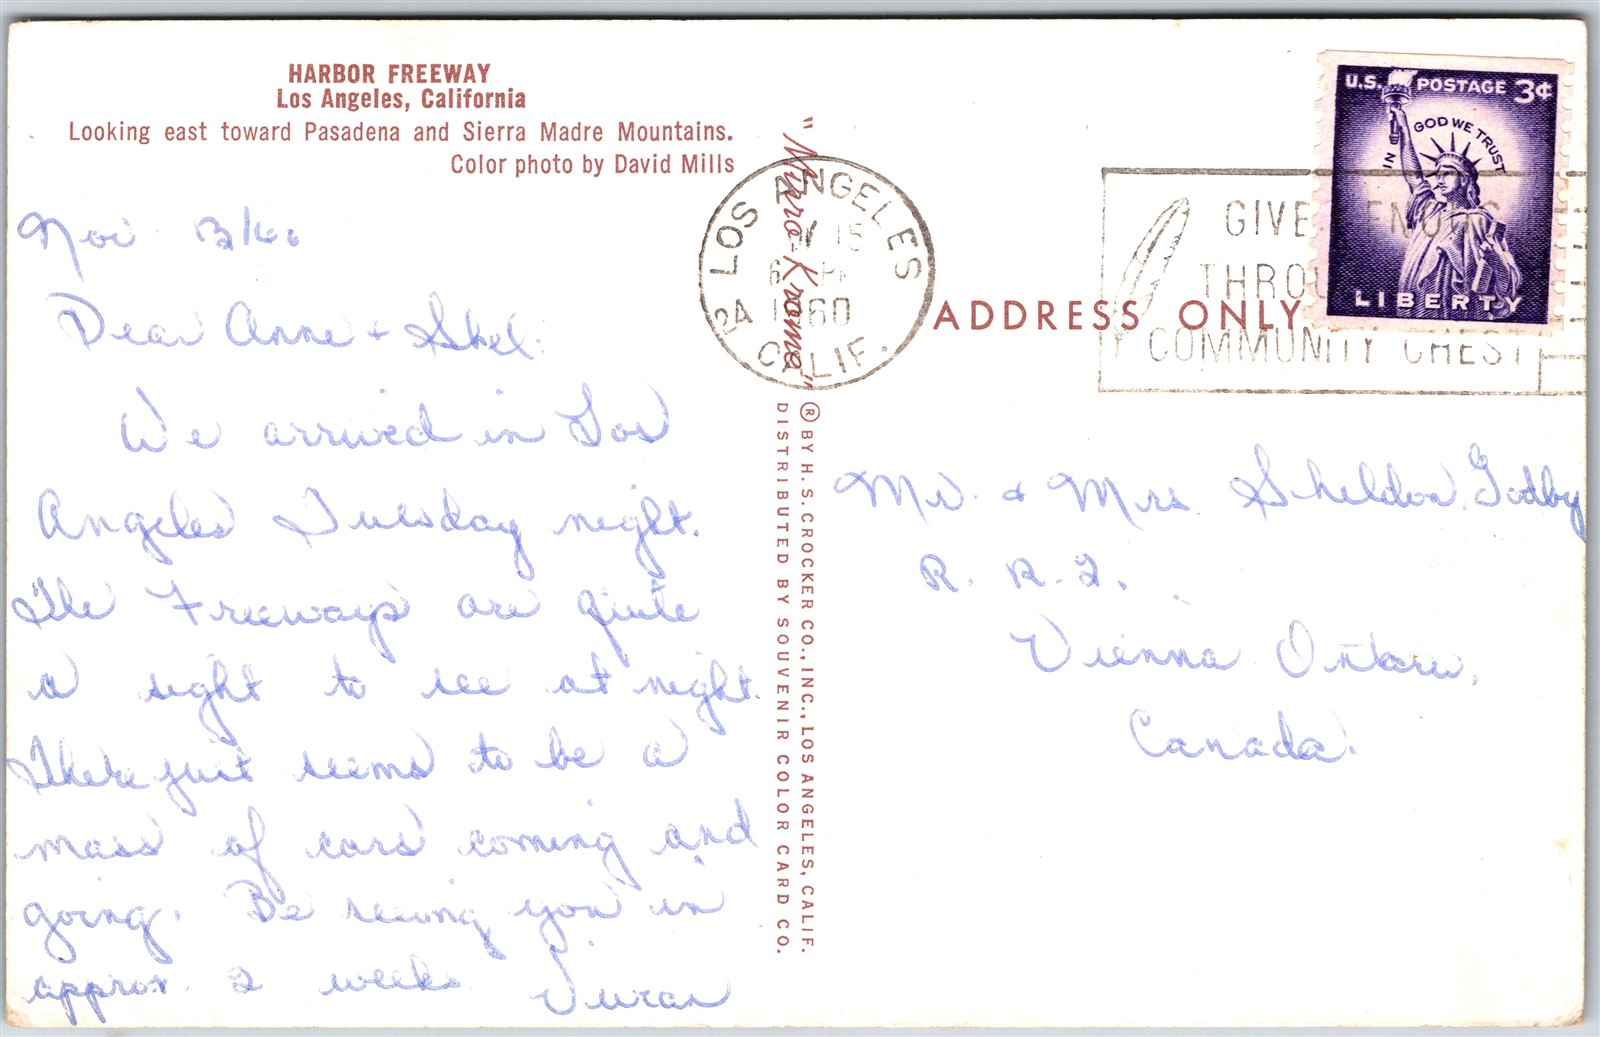 HARBOR FREEWAY
Los Angeles, California
Looking east toward Pasadena and Sierra Madre Mountains.
Color photo by David Mills
Nov /60
Dear Anne + Shel:
We arrived in Los
Angeles Tuesday night.
The Freeways are quite
a sight to see at night.
There just seems to be a
mass of cars coming and
going. Be seeing you in
approx. 2 weeks
"Mirro-Krome"
® BY H.S. CROCKER CO., INC., LOS ANGELES, CALIF.
DISTRIBUTED BY SOUVENIR COLOR CARD CO.
LOS ANGELES
15
2A 1960
CALIF.
GIVE
THROU
COMMUNITY CHEST
U.S. POSTAGE 3¢
IN GOD WE TRUST
LIBERTY
ADDRESS ONLY
Mr. & Mrs. Sheldon Godby
R. R. 2.
Vienna Ontario,
Canada.